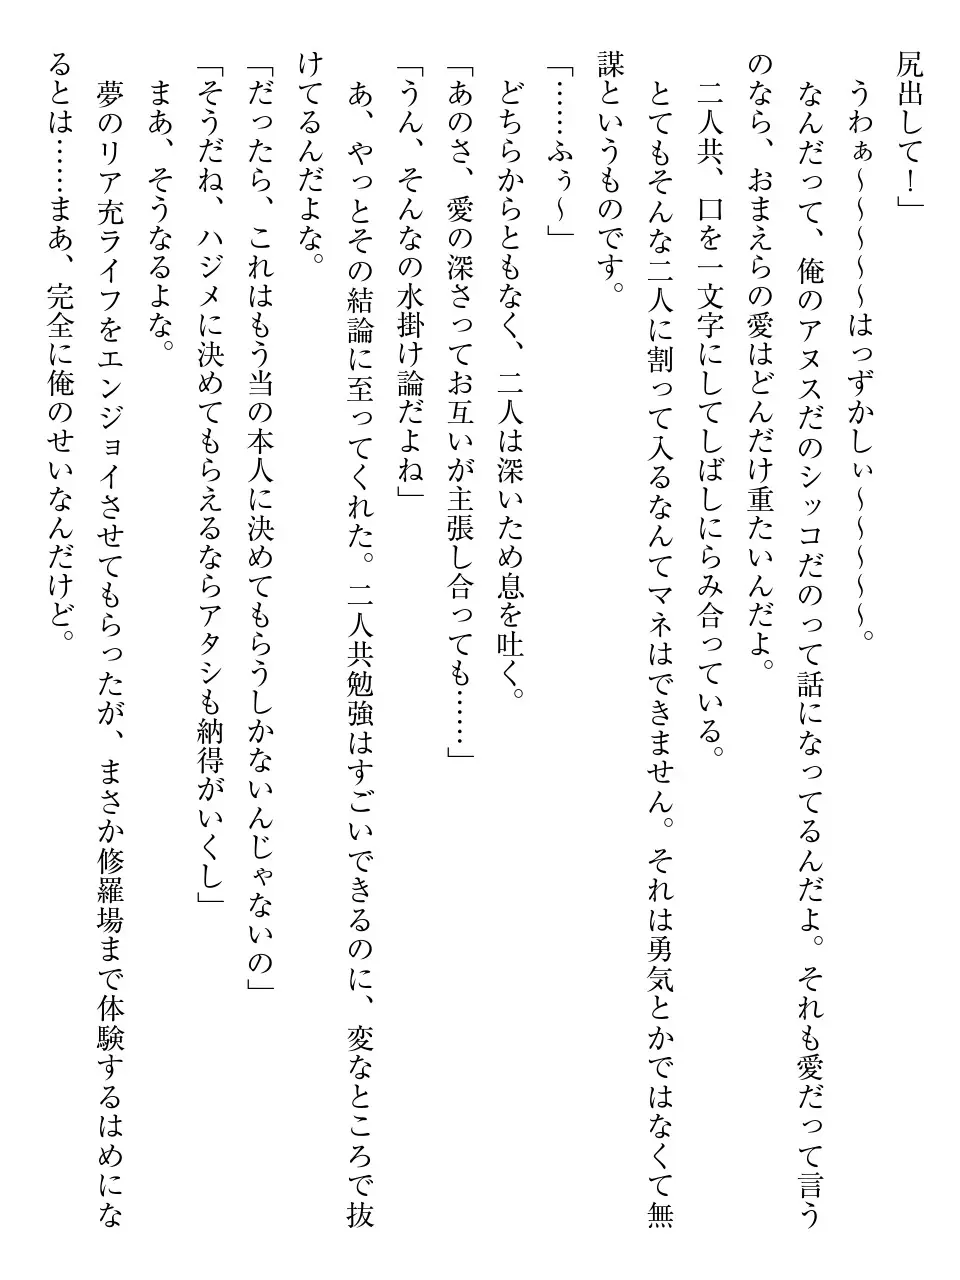 尻出して！」
　うわぁ～～～～～はっずかしぃ～～～～～。
　なんだって、俺のアヌスだのシッコだのって話になってるんだよ。それも愛だって言う
のなら、おまえらの愛はどんだけ重たいんだよ。
　二人共、口を一文字にしてしばしにらみ合っている。
　とてもそんな二人に割って入るなんてマネはできません。それは勇気とかではなくて無
謀というものです。
「……ふぅ～」
　どちらからともなく、二人は深いため息を吐く。
「あのさ、愛の深さってお互いが主張し合っても……」
「うん、そんなの水掛け論だよね」
　あ、やっとその結論に至ってくれた。二人共勉強はすごいできるのに、変なところで抜
けてるんだよな。
「だったら、これはもう当の本人に決めてもらうしかないんじゃないの」
「そうだね、ハジメに決めてもらえるならアタシも納得がいくし」
　まあ、そうなるよな。
　夢のリア充ライフをエンジョイさせてもらったが、まさか修羅場まで体験するはめにな
るとは……まあ、完全に俺のせいなんだけど。